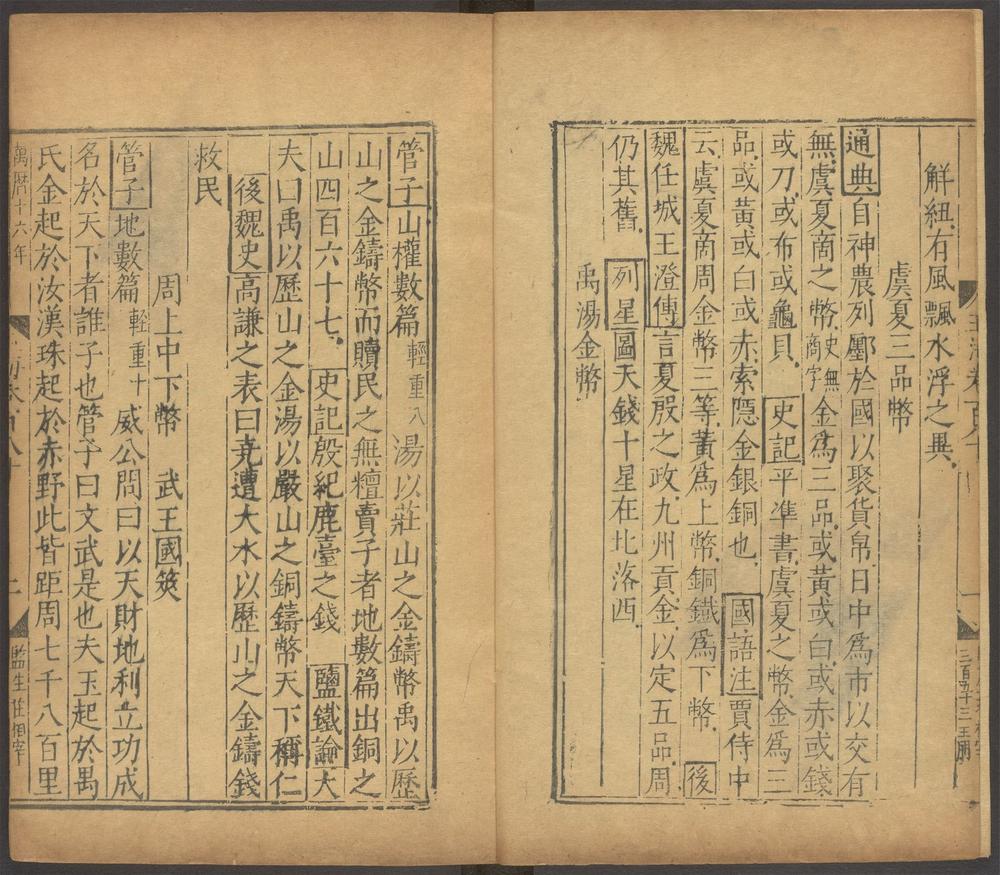 解紐有風飄水浮之異
虞夏三品幣
通典自神農列廛於國以聚貨帛日中為市以交有
無虞夏商之幣史無商字金為三品或黄或白或赤或錢
或刀或布或龜貝史記平準書虞夏之幣金為三
品或黄或白或赤索隠金銀銅也國語注賈侍中
云虞夏商周金幣三等黄為上幣銅鐵為下幣後
魏任城王澄傳言夏殷之政九州貢金以定五品周
仍其舊列星圖天錢十星在北落西
禹湯金幣
管子山權數篇輕重八湯以莊山之金鑄幣禹以歷
山之金鑄幣而贖民之無𥼷賣子者地數篇出銅之
山四百六十七史記殷紀鹿臺之錢鹽鐵論大
夫曰禹以歷山之金湯以嚴山之銅鑄幣天下稱仁
後魏史高謙之表曰堯遭大水以歷山之金鑄錢
救民
周上中下幣 武王國筴
管子地數篇輕重十威公問曰以天財地利立功成
名於天下者誰子也管子曰文武是也夫玉起於禺
氏金起於汝漢珠起於赤野此皆距周七千八百里
萬曆十六年
二
監生任相宰